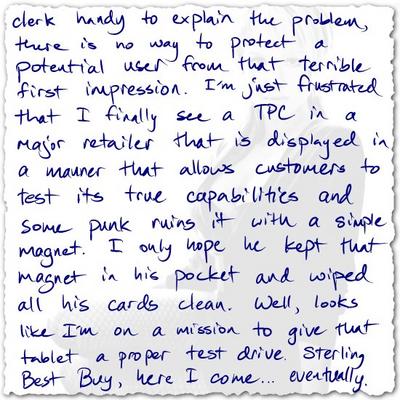 clerk handy to explain the problem,
there is no way to protect a
potential user from that terrible
first impression. I'm just frustrated
that I finally see a TPC in a
major retailer that is displayed in
a manner that allows customers to
test its true capabilities and
some punk ruins it with a simple
magnet. I only hope he kept that
magnet in his pocket and wiped
all his cards clean. Well, looks
like I'm on a mission to give that
tablet a proper test drive. Sterling
Best Buy, here I come... eventually.